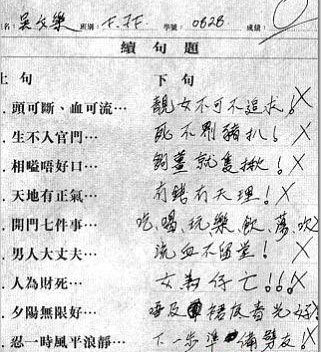 名：吳文樂 班別：F.3F. 學號：0626 成績：0
續句題
上句 下句
．頭可斷、血可流… 靚女不可不追求！X
．生不入官門… 死不剝豬扒！X
．相嗌唔好口… 夠薑就隻揪！X
．天地有正氣… 有錢有天理！X
．開門七件事… 吃,喝,玩,樂,飲,蕩,吹
．男人大丈夫… 流血不留堂！X
．人為財死… 女為仔亡！！X
．夕陽無限好… 唔及 光
．忍一時風平浪靜… 下一步準備劈友！X